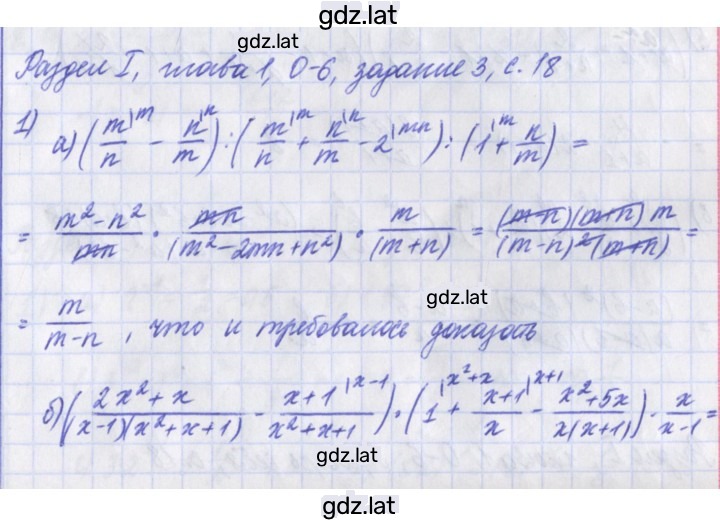 gdz.lat
gdz.lat
Раздел I, глава 1, О-6, задание 3, с. 18
1)
а) (m/n |m - n/m |n) : (m/n |m + n/m |n - 2 |mn) : (1 |m + n/m) =
= (m² - n²)/mn · mn/(m² - 2mn + n²) · m/(m + n) = (m - n)(m + n) m/(m - n)²(m + n) =
gdz.lat
= m/(m - n), что и требовалось доказать
б) ((2x² + x)/(x - 1)(x² + x + 1) - (x + 1)/(x² + x + 1) |x - 1) · (1 |x² + x + (x + 1)/x |x + 1 - (x² + 5x)/x(x + 1)) · x/(x - 1) =
gdz.lat
gdz.lat